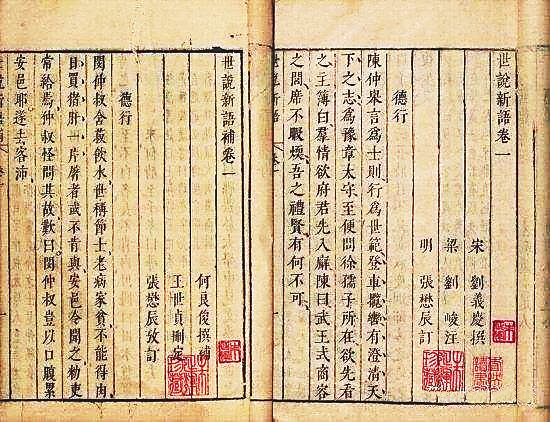 世說新語卷一
宋 劉義慶撰
梁 劉 峻注
明 張懋辰訂
德行
陳仲舉言為士則行為世範登車攬轡有澄清天
下之志為豫章太守至便問徐孺子所在欲先看
之主簿曰羣情欲府君先入廨陳曰武王式商容
之閭席不暇煖吾之禮賢有何不可
世說新語補卷一
何良俊撰補
王世貞刪定
張懋辰攷訂
德行
閔仲叔含菽飲水世稱節士老病家貧不能得肉
日買猪肝一片屠者或不肯與安邑令聞之勑吏
常給焉仲叔怪問其故歎曰閔仲叔豈以口腹累
安邑耶遂去客沛